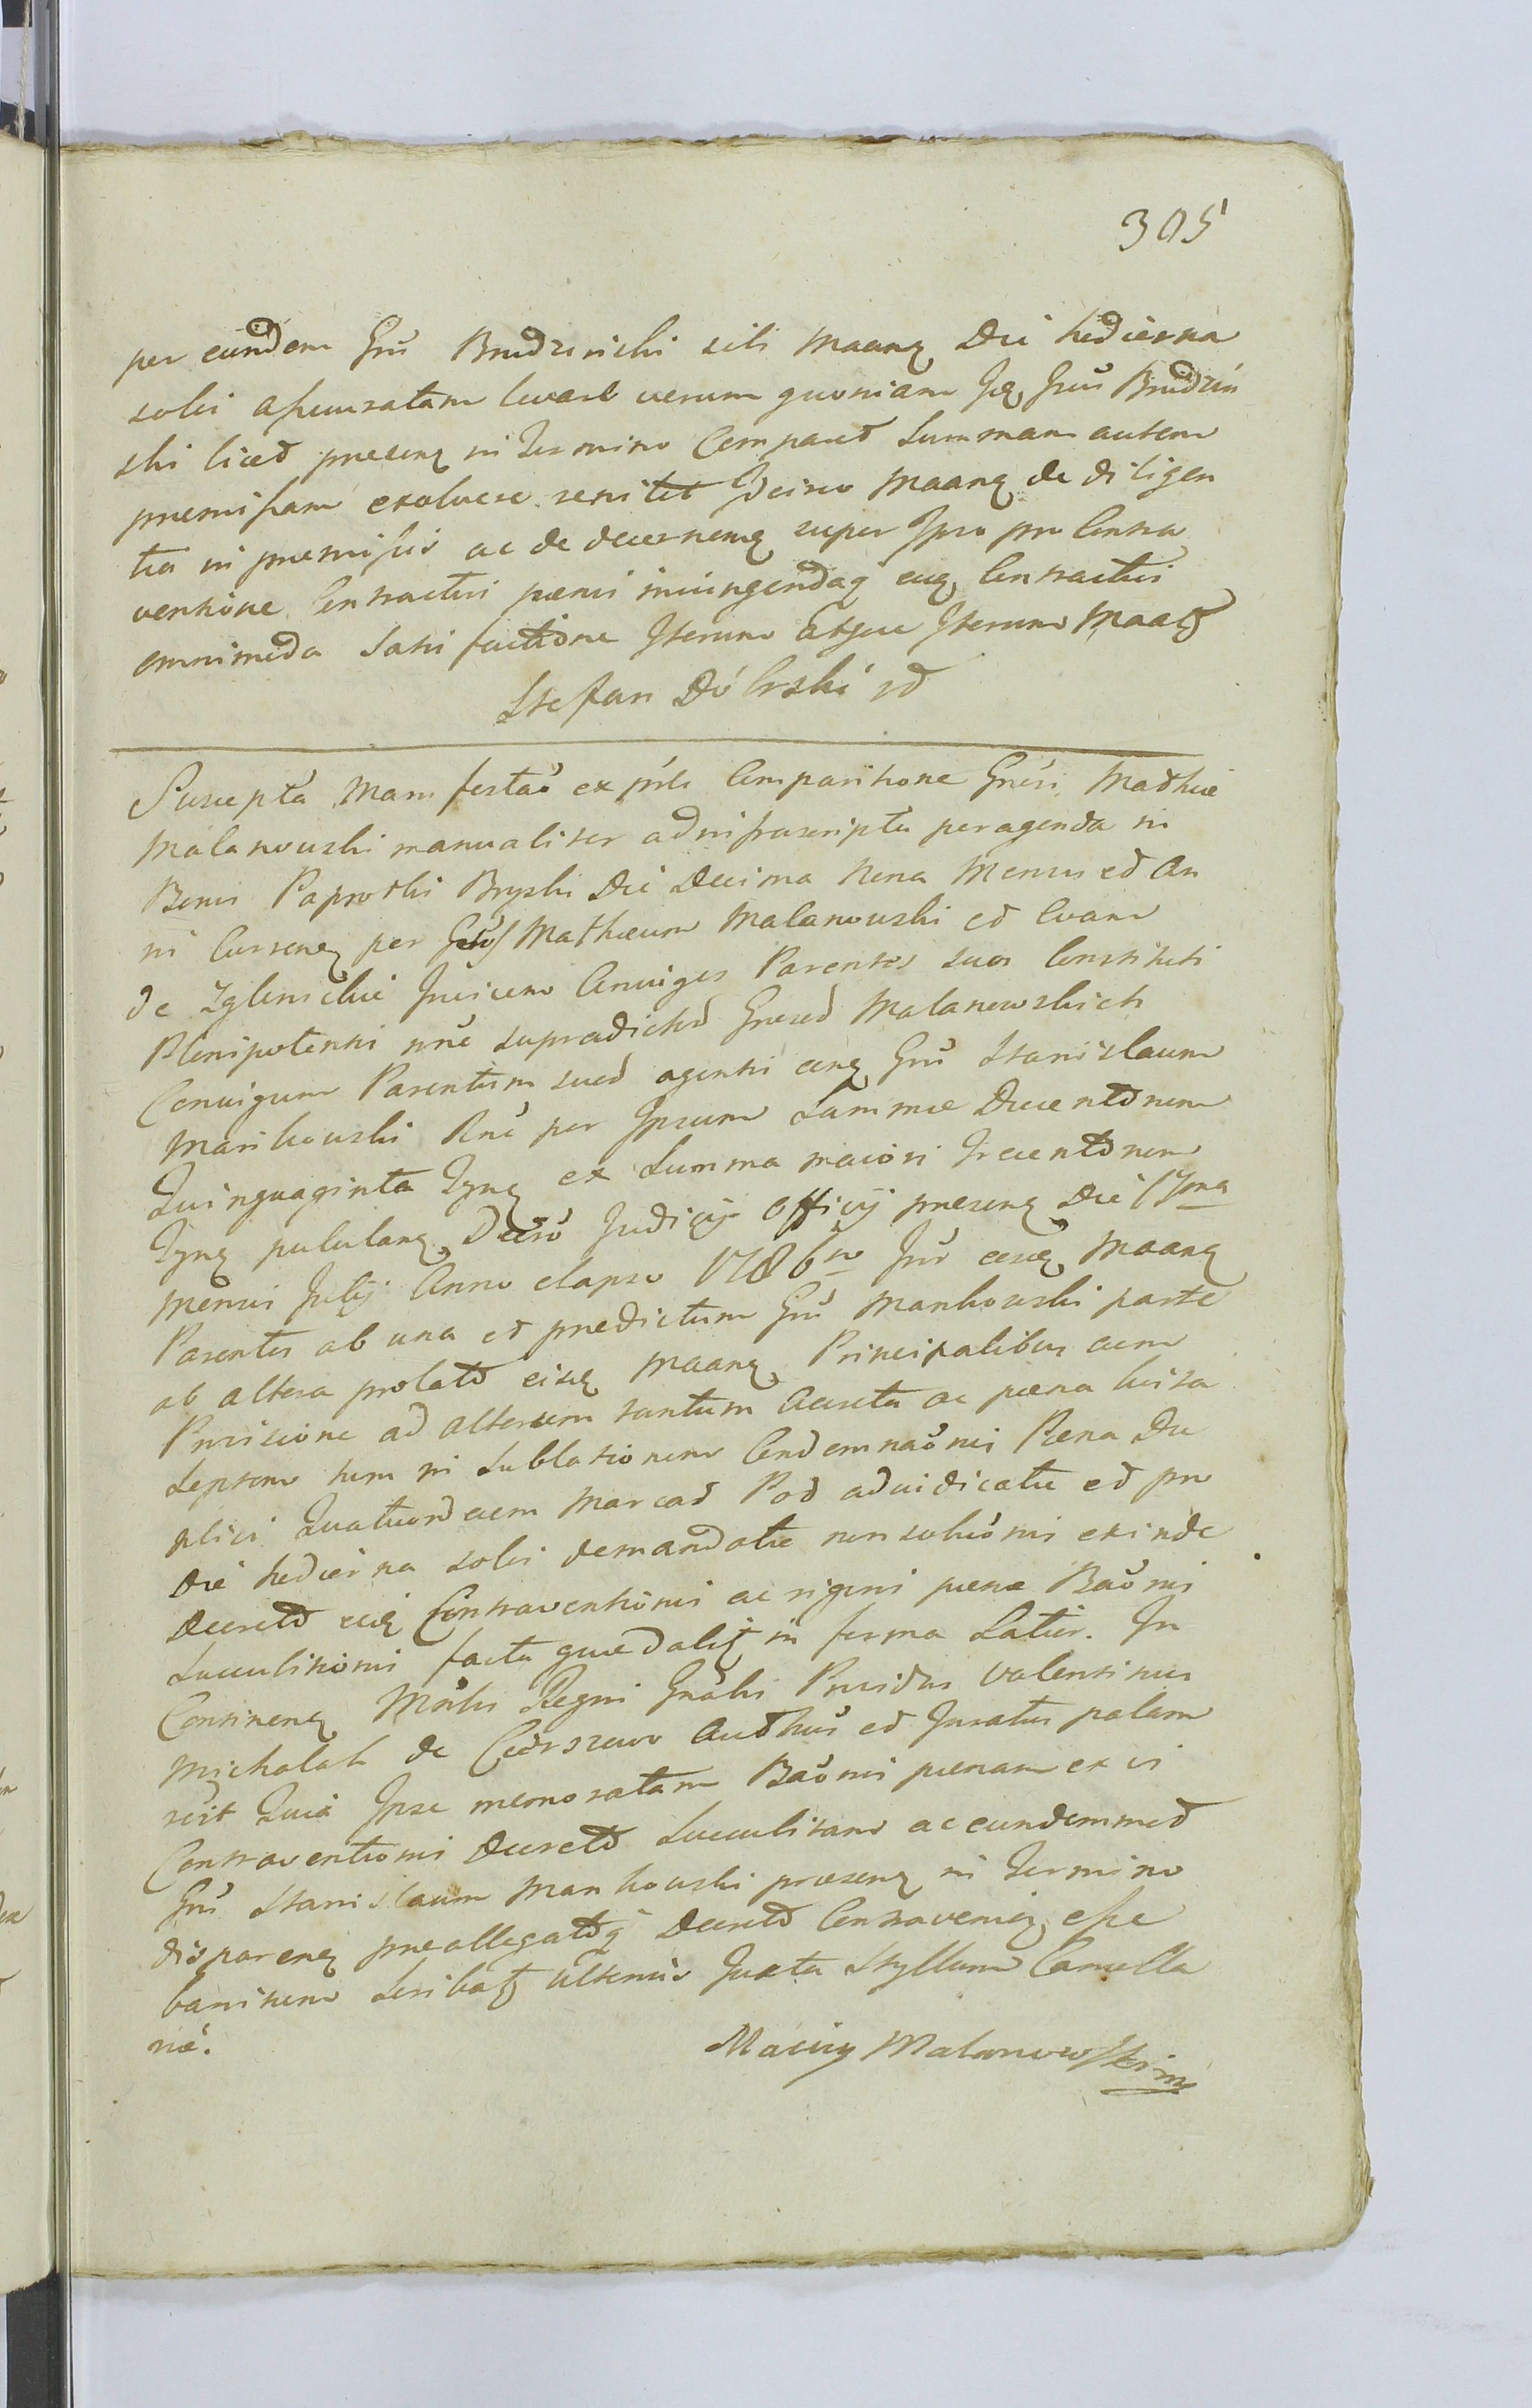 305
per eundem Grū Brudzinski sibi Maanq Die hodierna
solvi assecuratam levaret verum quoniam Jdē Grūs Brudzin
ski licet presenq in Termino Comparet Summam autem
premissam exolvere renitet Jdcirco Maanq de diligen
tia in premissis ac de decernenq super Jpso pro Contra
ventione Contractui pænis iniungendaq euq Contractui
omnimoda Satisfactione Jterum Atque Jterum Maatz
Stefan Dóbrski
Suscepta Manifestaō ex prsti Comparitione Gnesi Mathiæ
Malanowski manualiter ad infrascripta peragenda in
Bonis Paprotki Bryzki Die Decima Nona Mensis et An
ni Currenq per Grūs Mathæum Malanowski et Evam
de Zglinickie Jnvicem Conuiges Parentes suos Constituti
Plenipotenti nnē supradictor Gnesor Malanowskich
Conuigum Parentum suor agenti conq Grū Stanislaum
Mankowski Rnē per Jpsum Summæ Ducentorum
Quinquaginta Zynq ex Summa maiori Trecentorum
Zynq pululanq Decrō Judicij Officij presenq Die 17ma
Mensis Julij Anno elapso 1786to Jnr eosq Maanq
Parentes ab una et predictum Grū Mankowski parte
ab altera prolato eisq Maanq Principalibus cum
Provisione ad alterum tantum Accreta ac pæna luita
Septem tum in Sublationem Condemnaōnis Pæna Du
plici Quatuordecem Marcar Pol adiudicatæ et pro
Die hodierna solvi demandatæ non solutionis exinde
Decreto euq Contraventionis ac rigoris pænæ Baōnis
Succubitionis facta quædaliq in forma Latior. Jn
Continenq Mnstr Regni Gnālis Providus Valentinus
Michalak de Ciorszewo Authus et Juratus palam
recit Quia Jpse memoratam Baōnis pænam ex vi
Contraventionis Decreto Succubitam ac eundemmet
Grū Stanislaum Mankowski presenq in Termino
disparenq preallegatoq Decreto Contravenienq esse
banitum Scribatz ulterius Juxta Styllum Cancella
riæ.
Maciey Malanowski mp